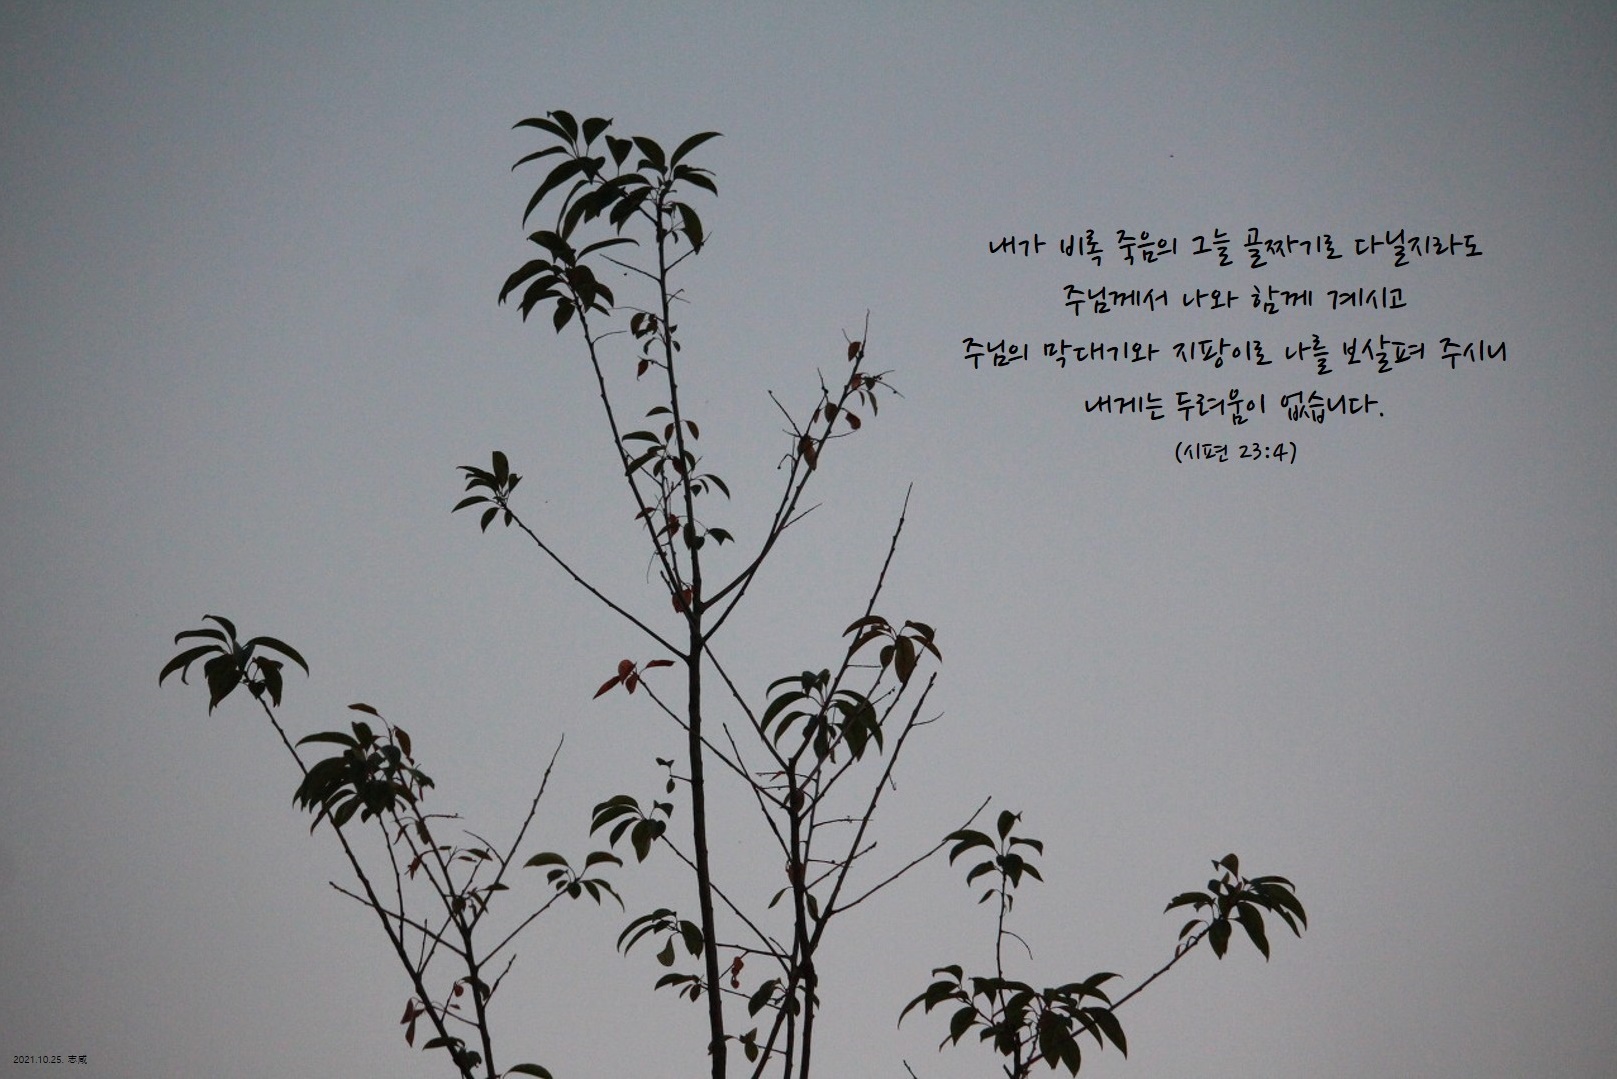 내가 비록 죽음의 그늘 골짜기로 다닐지라도
주님께서 나와 함께 계시고
주님의 막대기와 지팡이로 나를 보살펴 주시니
내게는 두려움이 없습니다.
(시편 23:4)
2021.10.25. 志咸